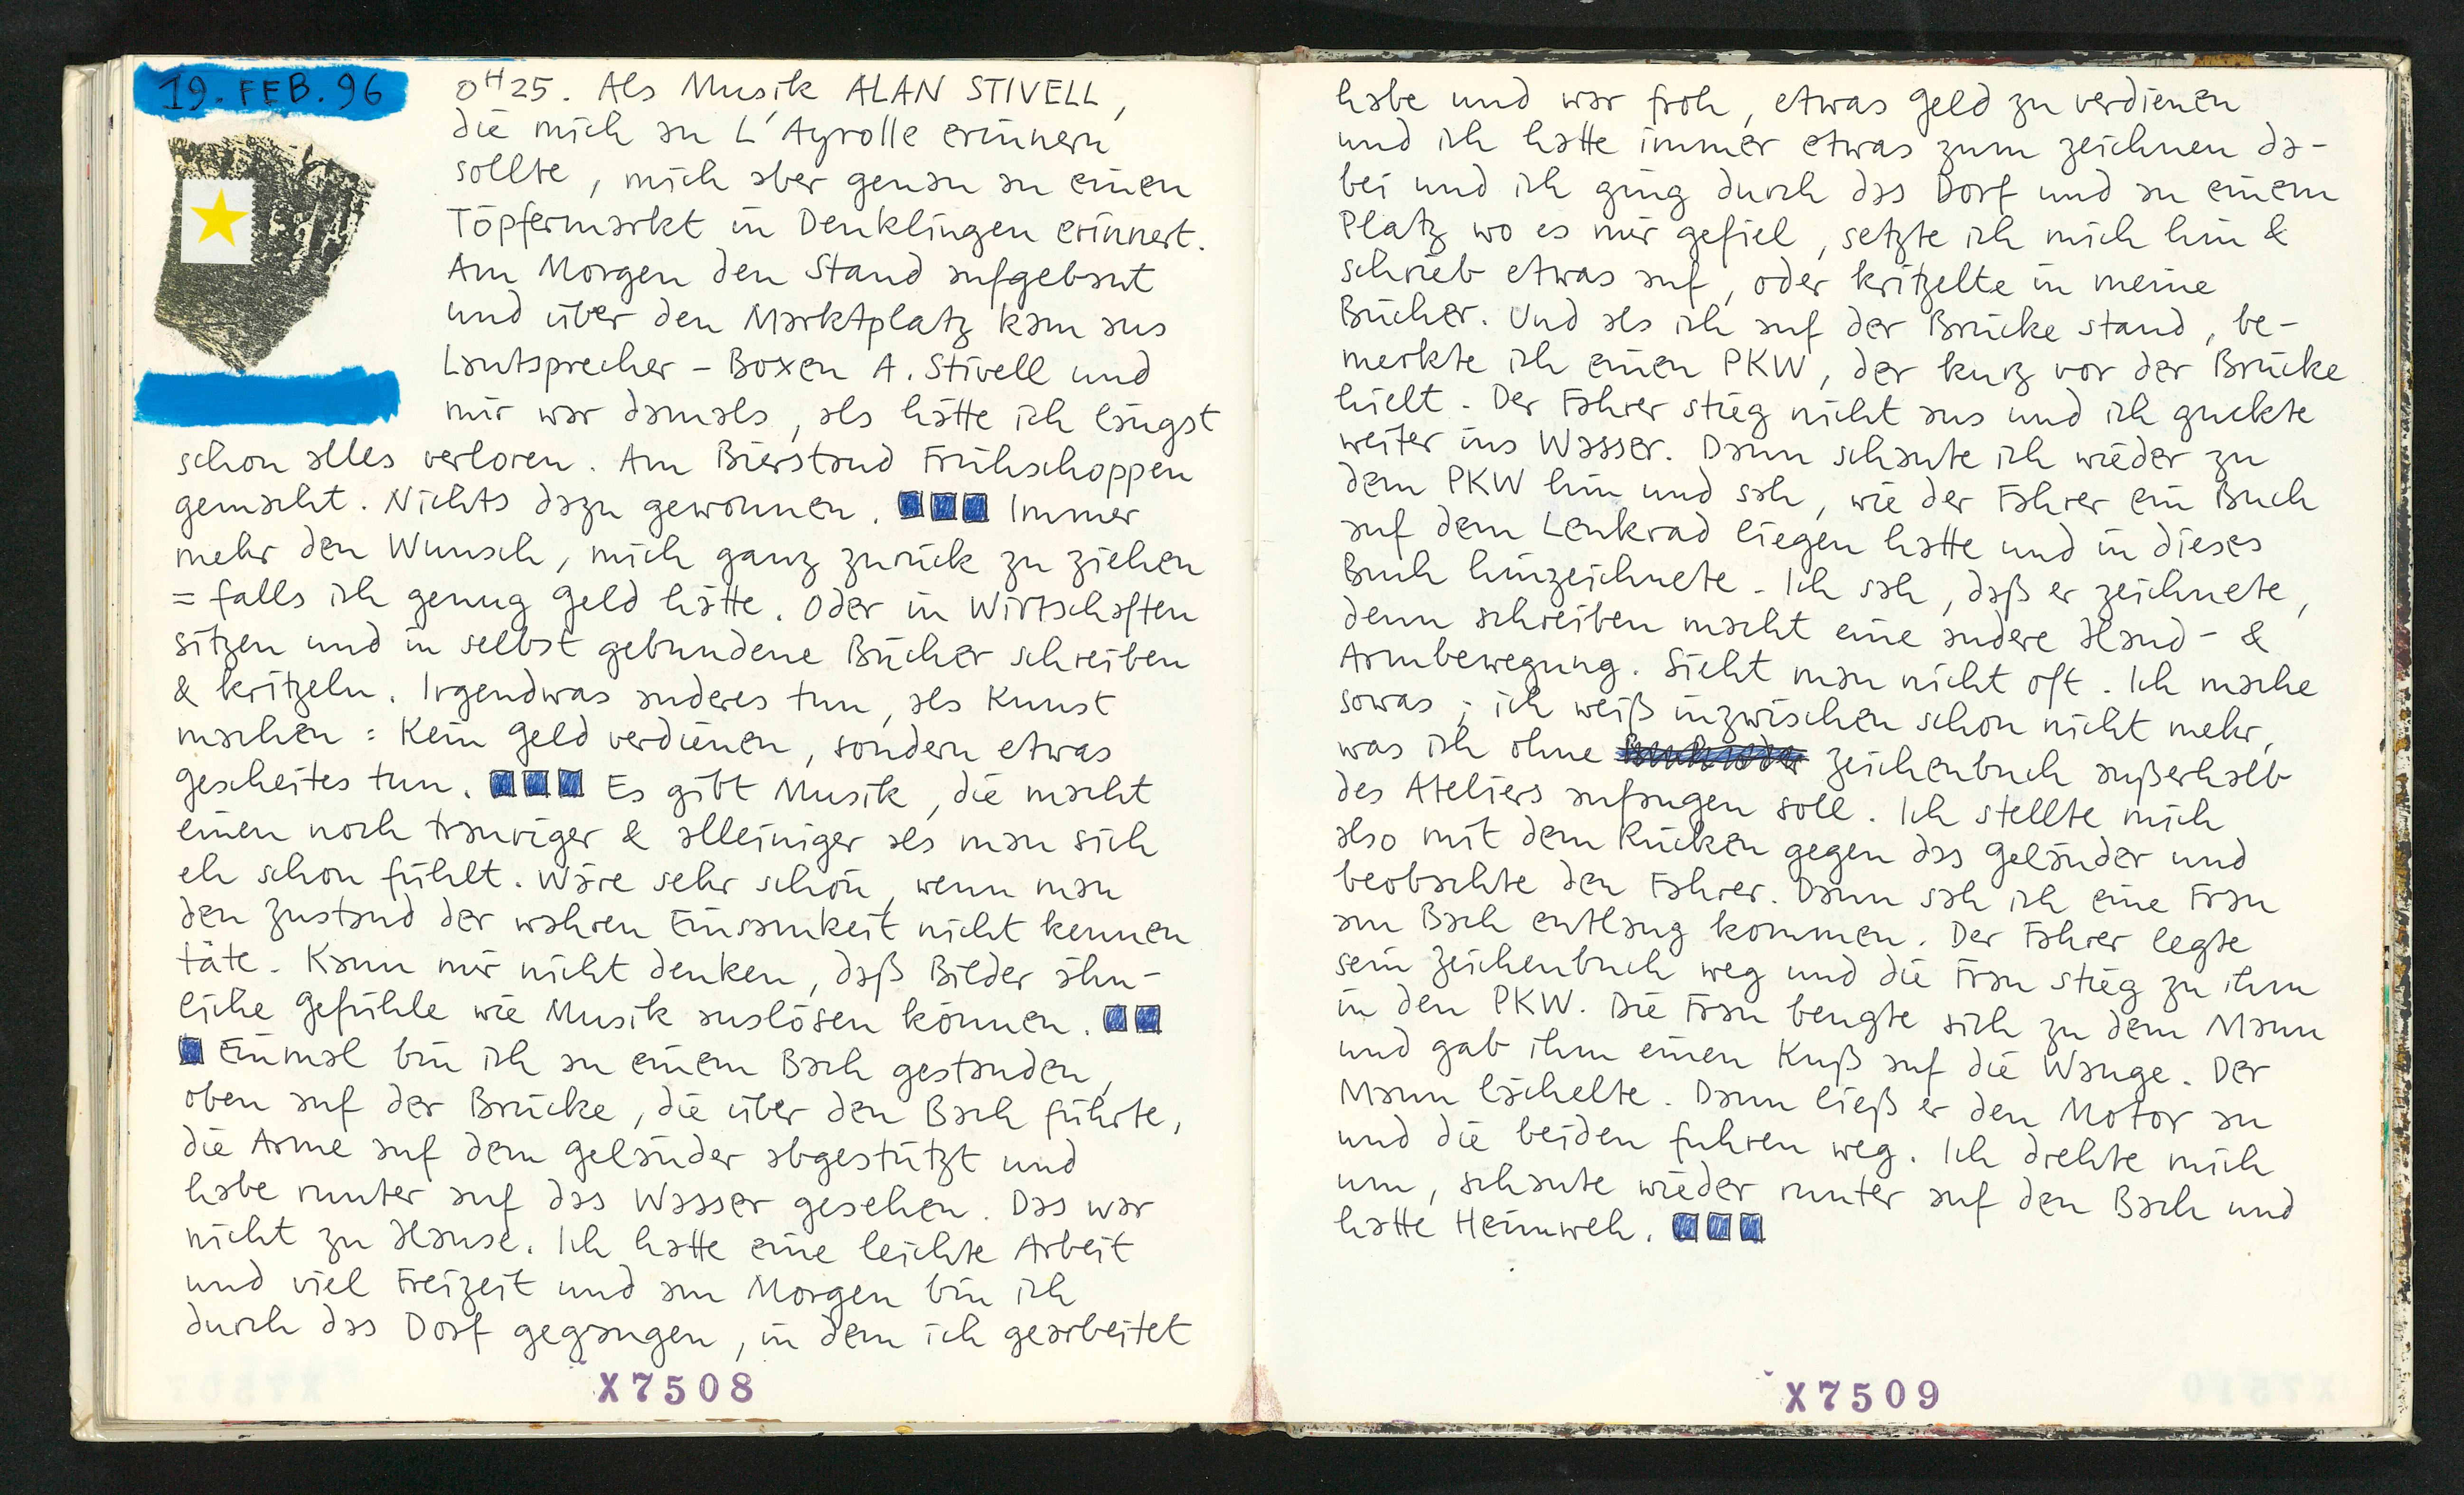 19. FEB. 96
0H25. Als Musik ALAN STIVELL,
die mich an L'Ayrolle erinnern
sollte, mich aber genau an einen
Töpfermarkt in Denklingen erinnert.
Am Morgen den Stand aufgebaut
und über den Marktplatz kam aus
Lautsprecher-Boxen A. Stivell und
mir war damals, als hätte ich längst
schon alles verloren. Am Bierstand Frühschoppen
gemacht. Nichts dazu gewonnen. Immer
mehr den Wunsch, mich ganz zurück zu ziehen
= falls ich genug Geld hätte. Oder in Wirtschaften
sitzen und in selbst gebundene Bücher schreiben
& kritzeln. Irgendwas anderes tun, als Kunst
machen: Kein Geld verdienen, sondern etwas
gescheites tun. Es gibt Musik, die macht
einen noch trauriger & alleiniger als man sich
eh schon fühlt. Wäre sehr schön, wenn man
den Zustand der wahren Einsamkeit nicht kennen
täte. Kann mir nicht denken, daß Bilder ähn-
liche Gefühle wie Musik auslösen können.
Einmal bin ich an einem Bach gestanden,
oben auf der Brücke, die über den Bach führte,
die Arme auf dem Geländer abgestützt und
habe runter auf das Wasser gesehen. Das war
nicht zu Hause. Ich hatte eine leichte Arbeit
und viel Freizeit und am Morgen bin ich
durch das Dorf gegangen, in dem ich gearbeitet
X7508
habe und war froh, etwas Geld zu verdienen
und ich hatte immer etwas zum zeichnen da-
bei und ich ging durch das Dorf und an einem
Platz wo es mir gefiel, setzte ich mich hin &
schrieb etwas auf, oder kritzelte in meine
Bücher. Und als ich auf der Brücke stand, be-
merkte ich einen PKW, der kurz vor der Brücke
hielt. Der Fahrer stieg nicht aus und ich guckte
weiter ins Wasser. Dann schaute ich wieder zu
dem PKW hin und sah, wie der Fahrer ein Buch
auf dem Lenkrad liegen hatte und in dieses
Buch hinzeichnete. Ich sah, daß er zeichnete,
denn schreiben macht eine andere Hand- &
Armbewegung. Sieht man nicht oft. Ich mache
sowas; ich weiß inzwischen schon nicht mehr,
was ich ohne Zeichenbuch außerhalb
des Ateliers anfangen soll. Ich stellte mich
also mit dem Rücken gegen das Geländer und
beobachte den Fahrer. Dann sah ich eine Frau
am Bach entlang kommen. Der Fahrer legte
sein Zeichenbuch weg und die Frau stieg zu ihm
in den PKW. Die Frau beugte sich zu dem Mann
und gab ihm einen Kuß auf die Wange. Der
Mann lächelte. Dann ließ er den Motor an
und die beiden fuhren weg. Ich drehte mich
um, schaute wieder runter auf den Bach und
hatte Heimweh.
X7509